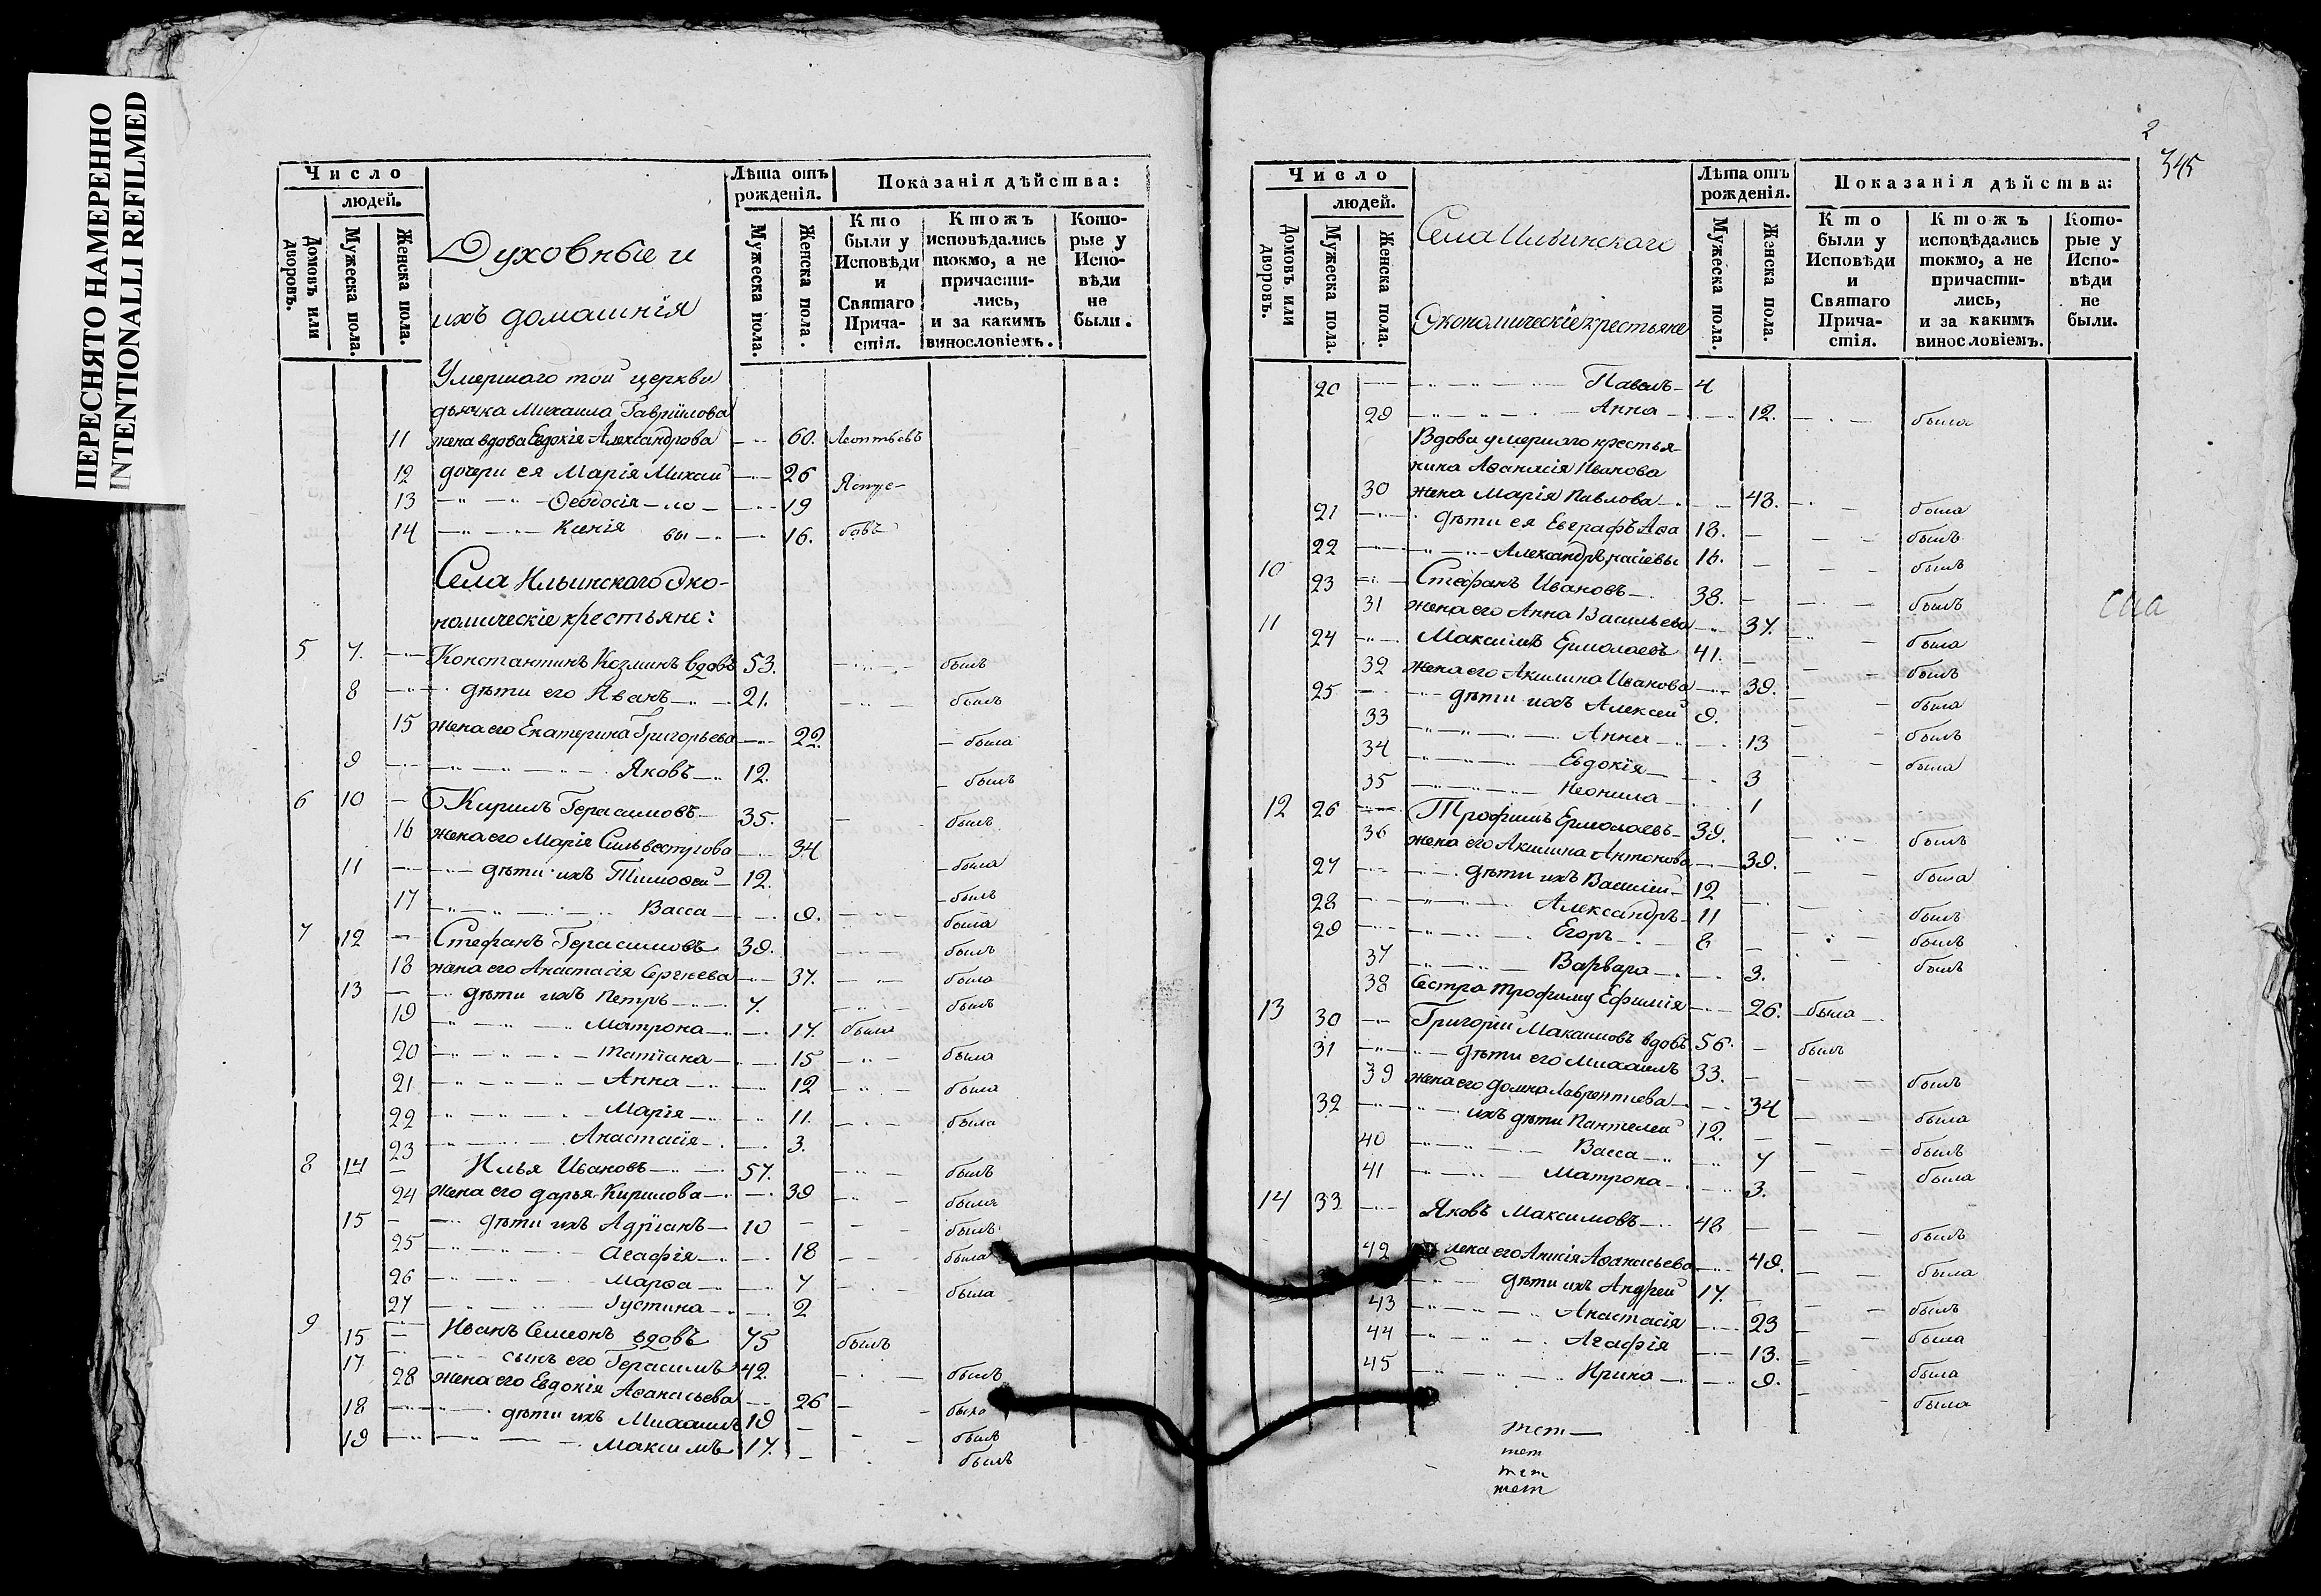 ПЕРЕСНЯТО НАМЕРЕННО
INTENTIONALLI REFILMED
Число
людей.
Домовъ или дворовъ.
Мужеска пола.
Женска пола.
Духовные и
ихъ домашнія
Лѣта отъ рожденія.
Мужеска пола.
Женска пола.
Показанія дѣйства:
Кто были у Исповѣди и Святаго Причастія.
Ктожъ исповѣдались токмо, а не причастились, и за какимъ винословіемъ.
Которые у Исповѣди не были.
Умершаго той церкви
дьячка Михаила Гавріилова
11 жена вдова Евдокія Александрова 60. Леонтьевъ
12 дочери ея Марія Михаи 26
13 Ѳеодосія ло 19
14 Ксенія вы 16.
Села Ильинского Эко-
номическіе крестьяне:
5 7. Константинъ Козминъ вдовъ 53. былъ
8 дѣти его Иванъ 21. былъ
15 жена его Екатерина Григорьева 22. была
9 Яковъ 12. былъ
6 10 Кирилъ Герасимовъ 35. былъ
16 жена его Марія Сильвестрова 34 была
11 дѣти ихъ Тимоѳей 12. былъ
17 Васса 9. была
7 12 Стефанъ Герасимовъ 39. былъ
18 жена его Анастасія Сергѣева 37. была
13 дѣти ихъ Петръ 7. былъ
19 Матрона 17. была
20 Татіана 15 была
21 Анна 12 была
22 Марія 11. была
23 Анастасія 3.
8 14 Илья Ивановъ 57. былъ
24 жена его Дарья Кирилова 39 была
15 дѣти ихъ Адріанъ 10 былъ
25 Агафія 18 была
26 Марѳа 7 была
27 Густина 2
9 15 Иванъ Семіонъ вдовъ 75 былъ
17 сынъ его Герасимъ 42. былъ
28 жена его Евдокія Аѳанасьева 26 была
18 дѣти ихъ Михаилъ 19 былъ
19 Максимъ 17. былъ
2
345
Число
людей.
Домовъ или дворовъ.
Мужеска пола.
Женска пола.
Села Ильинского
Экономическіе крестьяне
Лѣта отъ рожденія.
Мужеска пола.
Женска пола.
Показанія дѣйства:
Кто были у Исповѣди и Святаго Причастія.
Ктожъ исповѣдались токмо, а не причастились, и за какимъ винословіемъ.
Которые у Исповѣди не были.
20 Павелъ 4
29 Анна 12. была
Вдова умершаго крестья-
нина Аѳанасія Иванова
30 жена Марія Павлова 48. была
21 дѣти ея Евграфъ Аѳа 18. былъ
22 Александръ насіевы 16. былъ
10 23 Стефанъ Ивановъ 38. былъ
31 жена его Анна Васильева 37. была
11 24 Максимъ Ермолаевъ 41. былъ
32 жена его Акилина Иванова 39. была
25 дѣти ихъ Алексей 9. былъ
33 Анна 13 была
34 Евдокія 3
35 Неонила 1
12 26 Трофимъ Ермолаевъ 39. былъ
36 жена его Акилина Антонова 39. была
27 дѣти ихъ Василій 12 былъ
28 Александръ 11 былъ
29 Егоръ 8 былъ
37 Варвара 3.
38 Сестра Трофиму Ефимія 26. была
13 30 Григорій Максимовъ вдовъ 56. былъ
31 дѣти его Михаилъ 33. былъ
39 жена его Домна Лаврентиева 34 была
32 ихъ дѣти Пантелей 12. былъ
40 Васса 7 была
41 Матрона 3.
14 33 Яковъ Максимовъ 48 былъ
42 жена его Анисія Аѳанасьева 49. была
дѣти ихъ Андрей 17. былъ
43 Анастасія 23 была
44 Агафія 13. была
45 Ирина 9. была